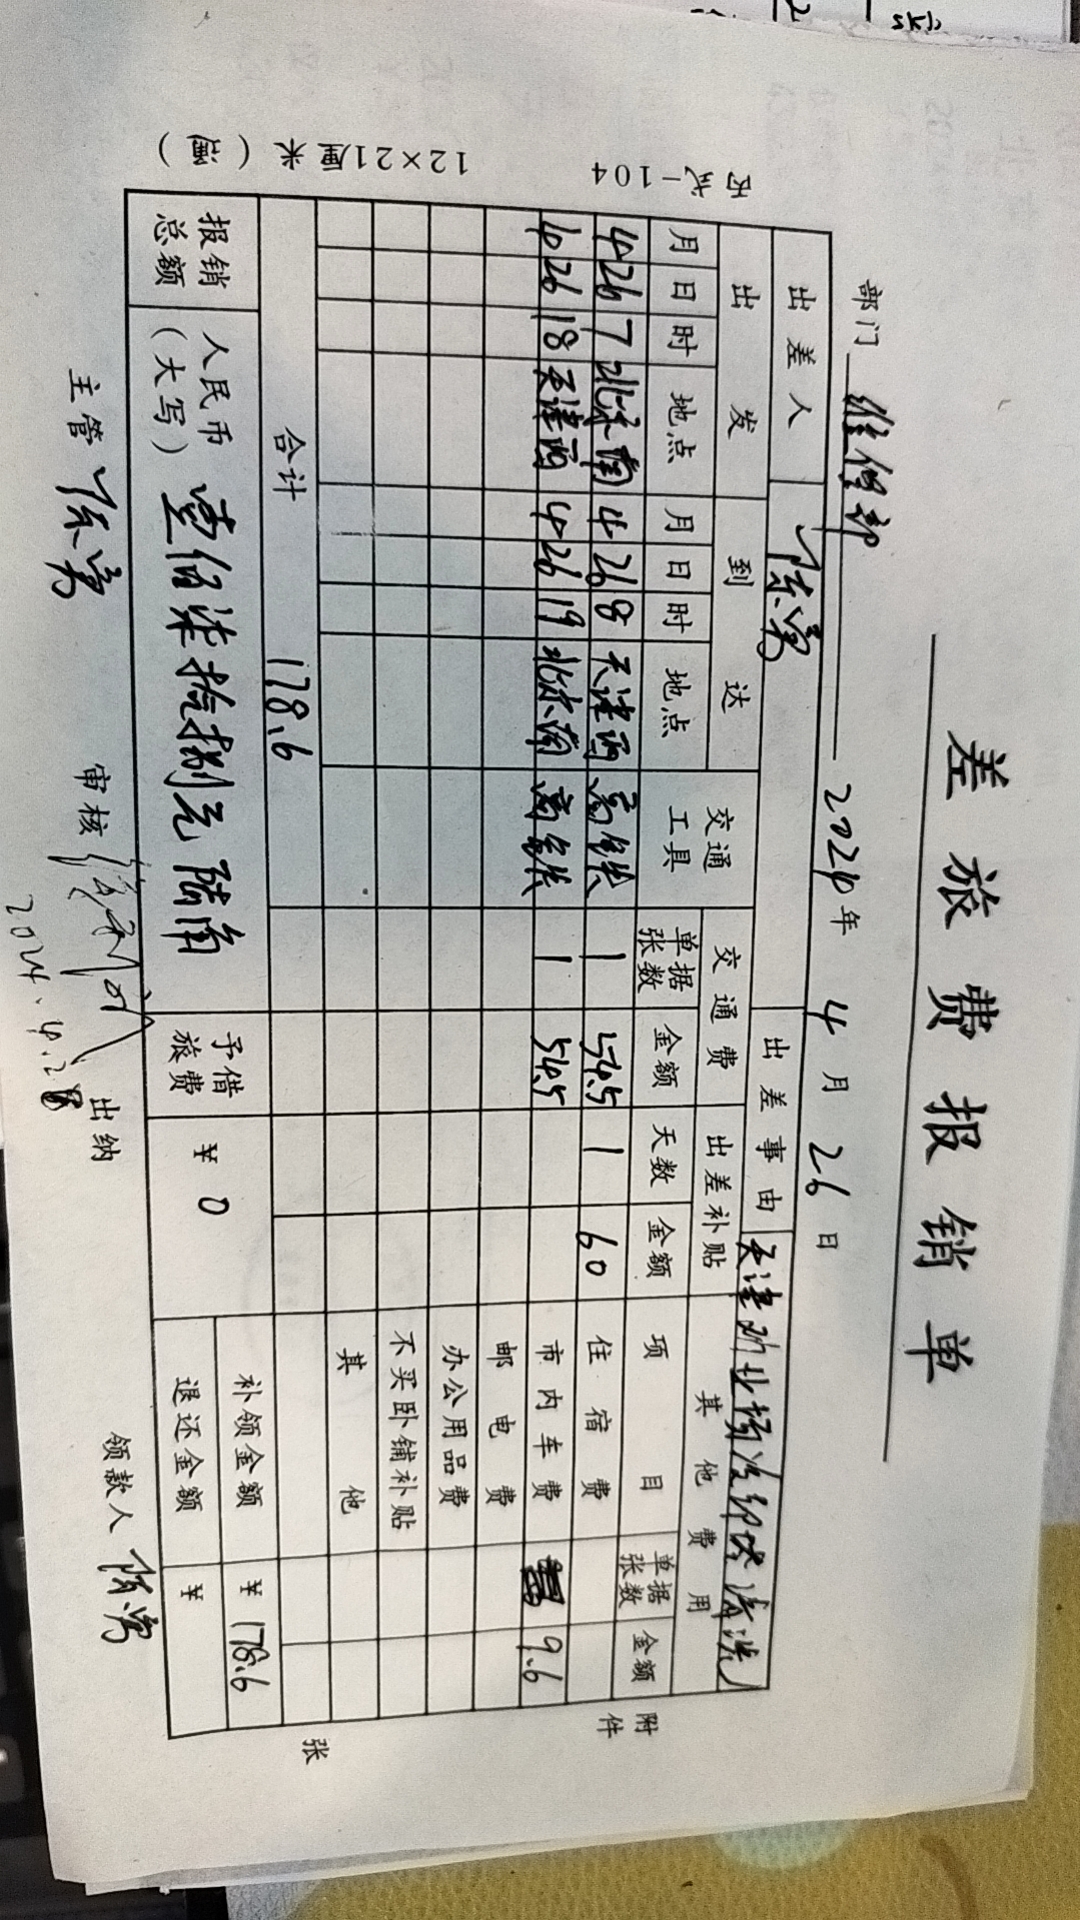 差旅费报销单
部门 维修部 2024年 4月 26日
出差人 陈勇 出差事由 天津
出发 到达 交通工具 交通费 出差补贴 其他费用
月 日 时 地点 月 日 时 地点 单据张数 金额 天数 金额 项目 单据张数 金额
4 26 7 北京南 4 26 8 天津西 高铁 1 54.5 1 60 住宿费
4 26 18 天津西 4 26 19 北京南 高铁 1 54.5 市内车费 9.6
邮电费
办公用品费
不买卧铺补贴
其他
合计 178.6
报销总额 人民币(大写) 壹佰柒拾捌元陆角 予借旅费 ¥ 0 补领金额 ¥ 178.6
退还金额 ¥
主管 陈勇 审核 出纳 领款人 陈勇
2024.4.28
附件 张
丙式-104 12×21厘米(通)